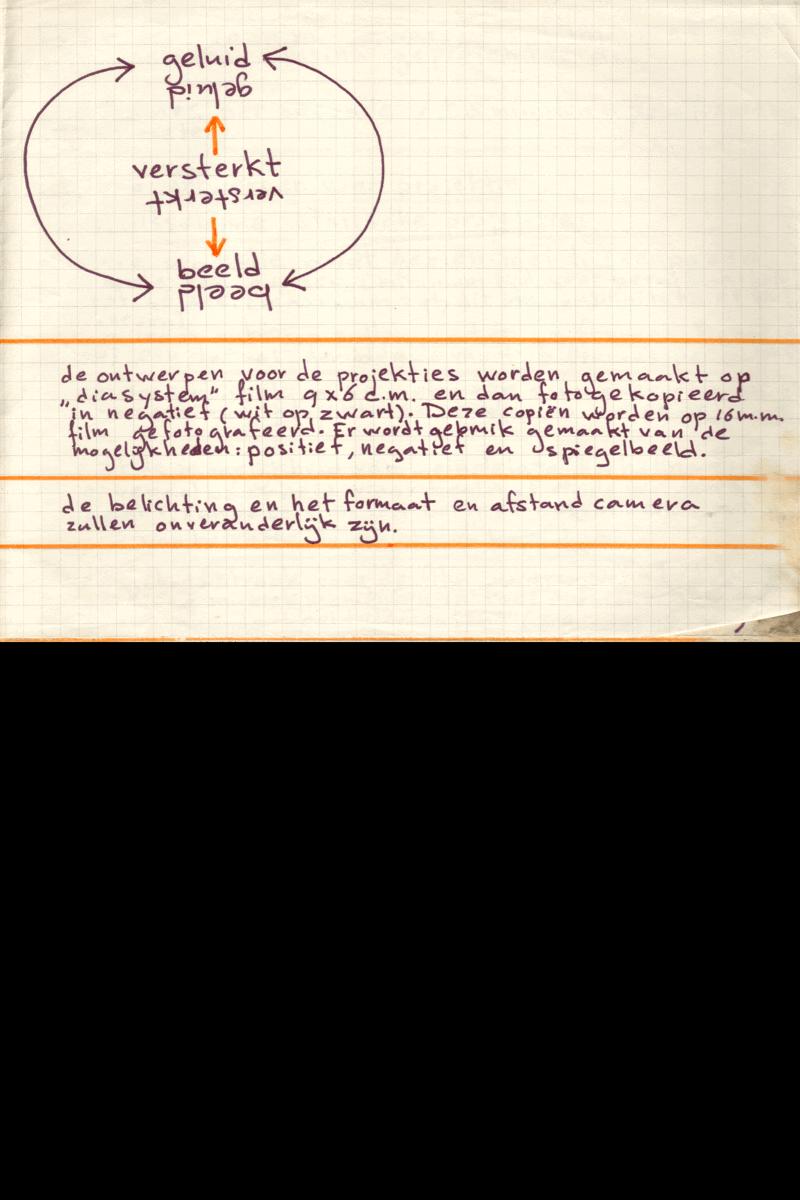 geluid
geluid
versterkt
versterkt
beeld
beeld
de ontwerpen voor de projekties worden gemaakt op
„diasystem" film 9x6 c.m. en dan fotogekopieerd
in negatief (wit op zwart). Deze copiën worden op 16m.m.
film gefotografeerd. Er wordt gebruik gemaakt van de
mogelijkheden: positief, negatief en spiegelbeeld.
de belichting en het formaat en afstand camera
zullen onveranderlijk zijn.